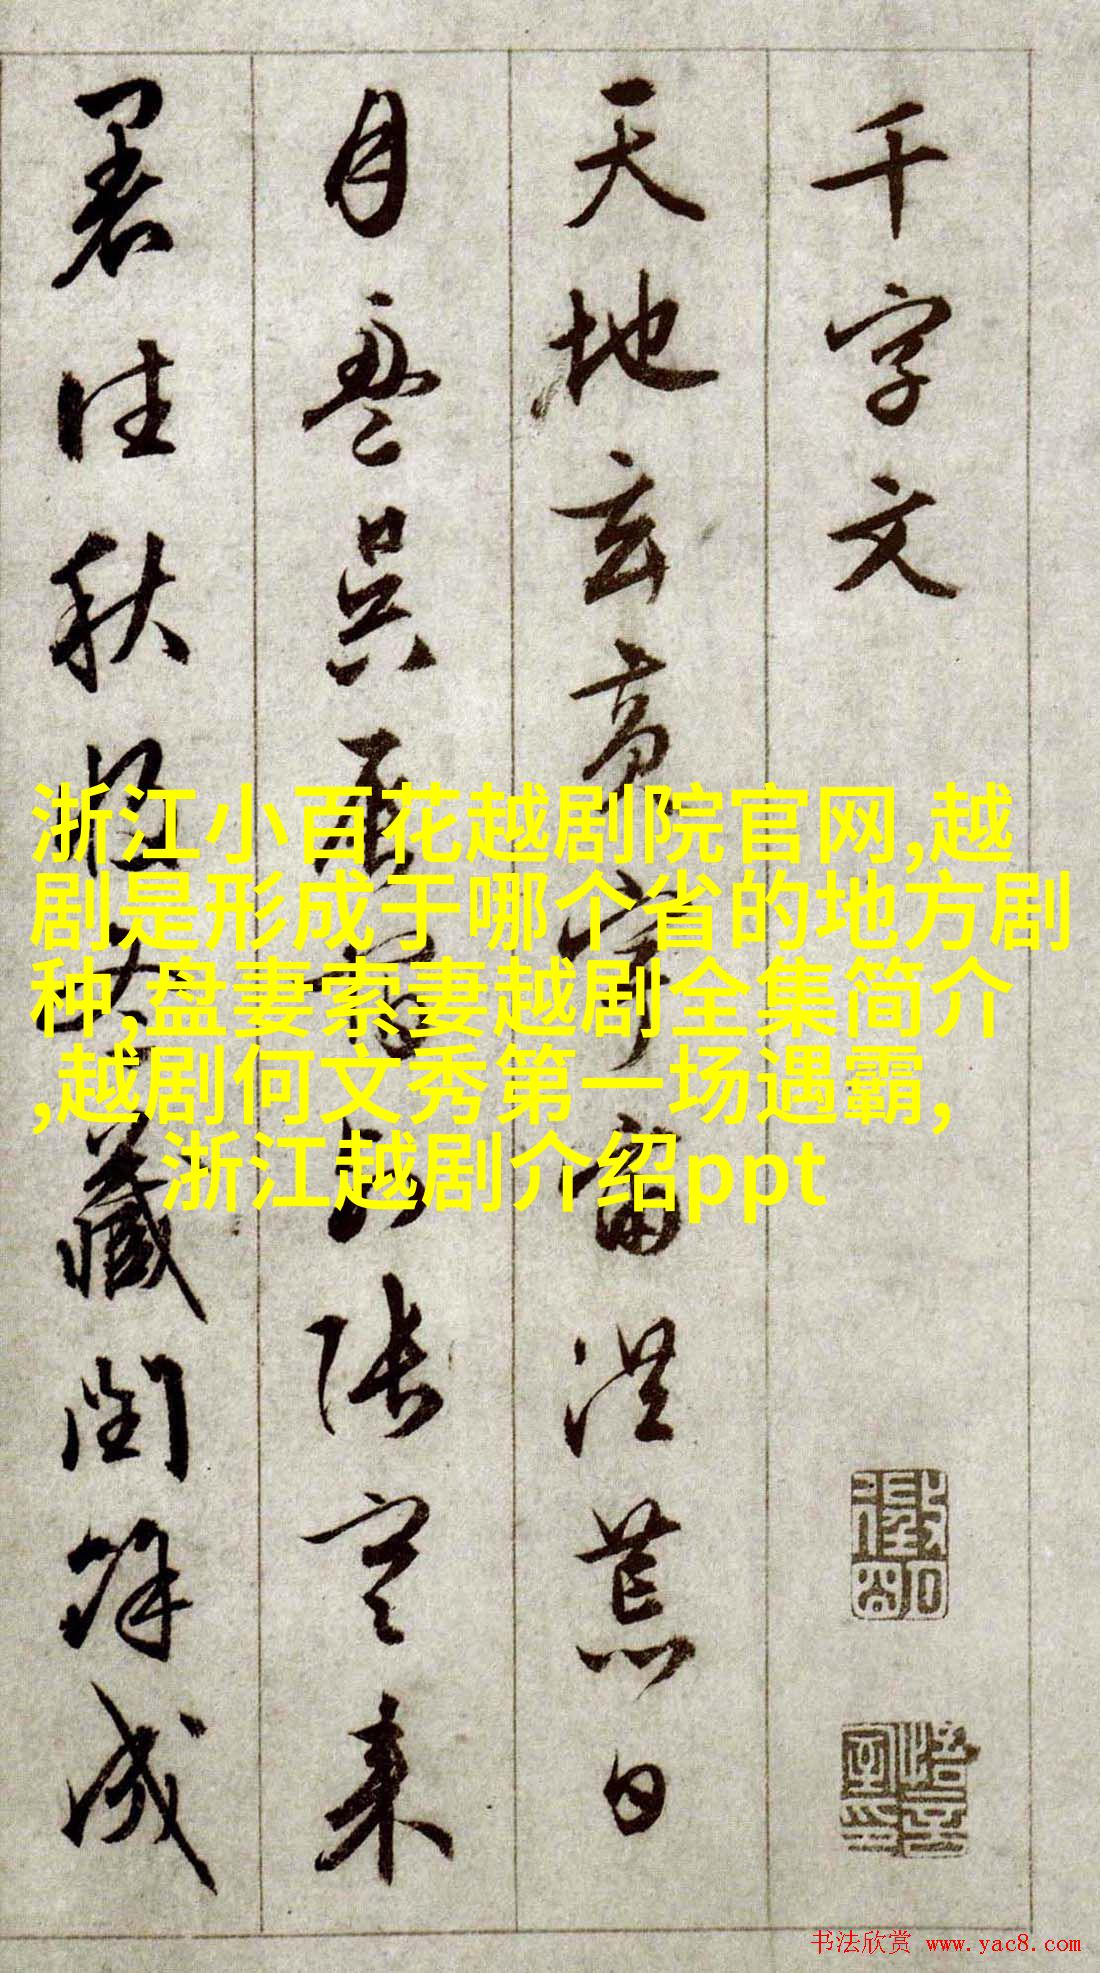 千字文
天地玄黄宇宙洪荒日
月盈昃辰宿列張寒来
暑往秋收冬藏閏餘成
浙江小百花越剧院官网,越
剧是形成于哪个省的地方剧
种,盘妻索妻越剧全集简介
,越剧何文秀第一场遇霸,
浙江越剧介绍ppt
书法欣赏 www.yac8.com